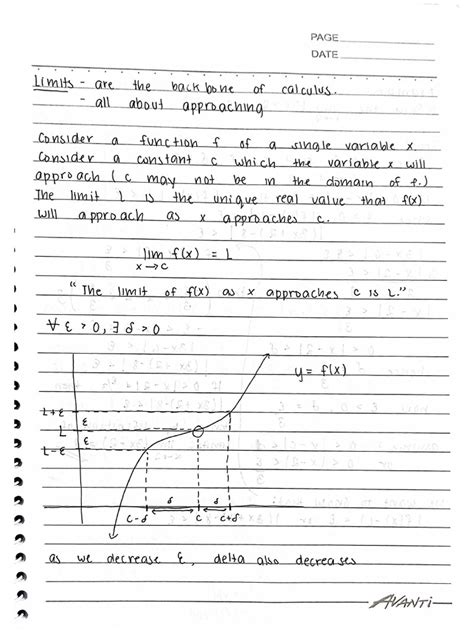 PAGE
DATE
Limits - are the backbone of calculus.
- all about approaching
Consider a function f of a single variable x.
Consider a constant c which the variable x will
approach (c may not be in the domain of f.)
The limit L is the unique real value that f(x)
will approach as x approaches c.
lim f(x) = L
x→c
"The limit of f(x) as x approaches c is L."
∀ ε > 0, ∃ δ > 0
y = f(x)
L+ε
ε
L
ε
L-ε
δ δ
c-δ c c+δ
as we decrease ε, delta also decreases
AVANTI